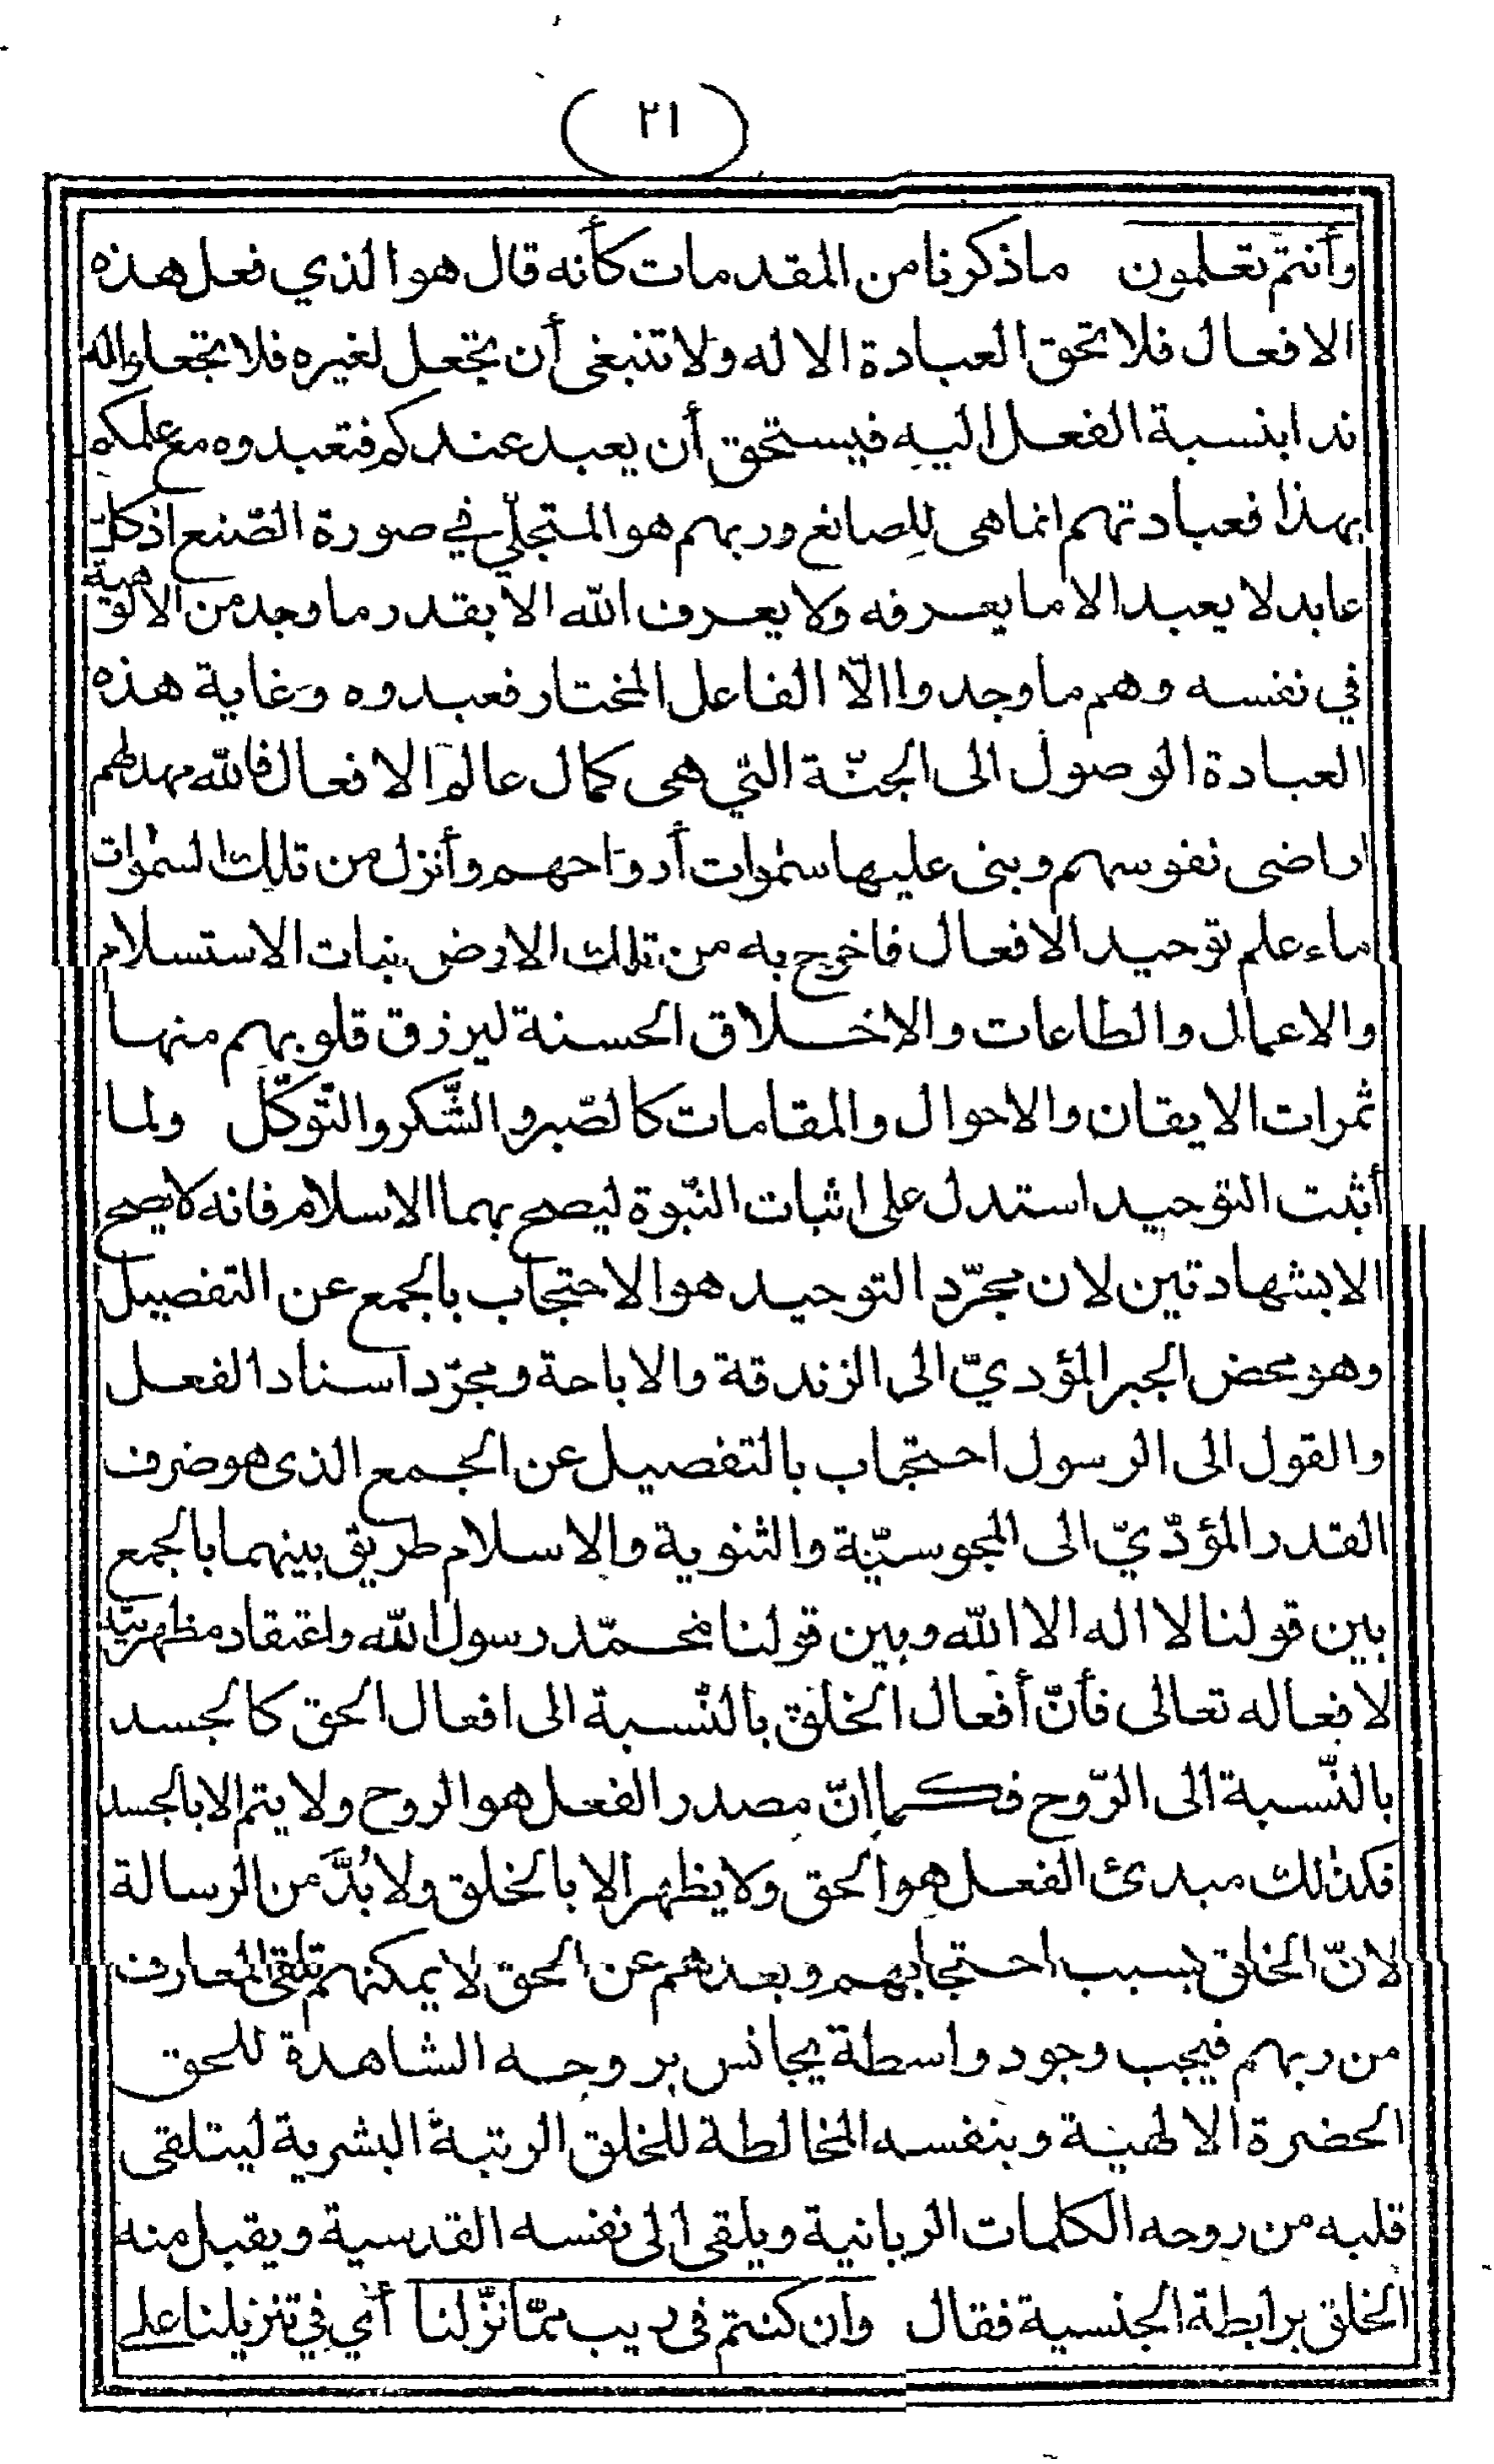 ( ٢١ )
وأنتم تعلمون ماذكرنا من المقدمات كأنه قال هو الذي فعل هذه
الافعال فلا تحق العبادة الا له ولا تنبغى أن تجعل لغيره فلا تجعلوا لله
ندا بنسبة الفعل اليه فيستحق أن يعبد عندكم فتعبدوه مع علمكم
بهذا فعبادتهم انما هى للصانع وربهم هو المتجلّي في صورة الصّنع اذ كلّ
عابد لا يعبد الا ما يعرفه ولا يعرف الله الا بقدر ما وجد من الالوهية
في نفسه وهم ما وجدوا الّا الفاعل المختار فعبدوه وغاية هذه
العبادة الوصول الى الجنّة التي هى كمال عالم الافعال فالله مهد لهم
اراضى نفوسهم وبنى عليها سمٰوات أرواحهم وأنزل من تلك السمٰوات
ماء علم توحيد الافعال فاخرج به من تلك الارض نبات الاستسلام
والاعمال والطاعات والاخلاق الحسنة ليرزق قلوبهم منها
ثمرات الايقان والاحوال والمقامات كالصّبر والشّكر والتّوكّل ولما
أثبت التوحيد استدل على اثبات النّبوة ليصح بهما الاسلام فانه لا يصح
الا بشهادتين لان مجرّد التوحيد هو الاحتجاب بالجمع عن التفصيل
وهو محض الجبر المؤديّ الى الزندقة والاباحة ومجرّد اسناد الفعل
والقول الى الرسول احتجاب بالتفصيل عن الجمع الذى هو ضرف
القدر المؤدّيّ الى المجوسيّة والثنوية والاسلام طريق بينهما بالجمع
بين قولنا لا اله الا الله وبين قولنا محمّد رسول الله واعتقاد مظهريته
لافعاله تعالى فأنّ أفعال الخلق بالنّسبة الى افعال الحق كالجسد
بالنّسبة الى الرّوح فكما انّ مصدر الفعل هو الروح ولا يتم الا بالجسد
فكذلك مبدئ الفعل هو الحق ولا يظهر الا بالخلق ولا بُدَّ من الرسالة
لانّ الخلق بسبب احتجابهم وبعدهم عن الحق لا يمكنهم تلقى المعارف
من ربهم فيجب وجود واسطة يجانس بروحه الشاهدة للحق
الحضرة الالهية وبنفسه المخالطة للخلق الرتبة البشرية ليتلقى
قلبه من روحه الكلمات الربانية ويلقى الى نفسه القدسية ويقبل منه
الخلق برابطة الجنسية فقال وان كنتم فى ريب ممّا نزّلنا أي في تنزيلنا على